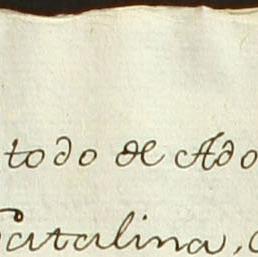 todo de Ado
Catalina,